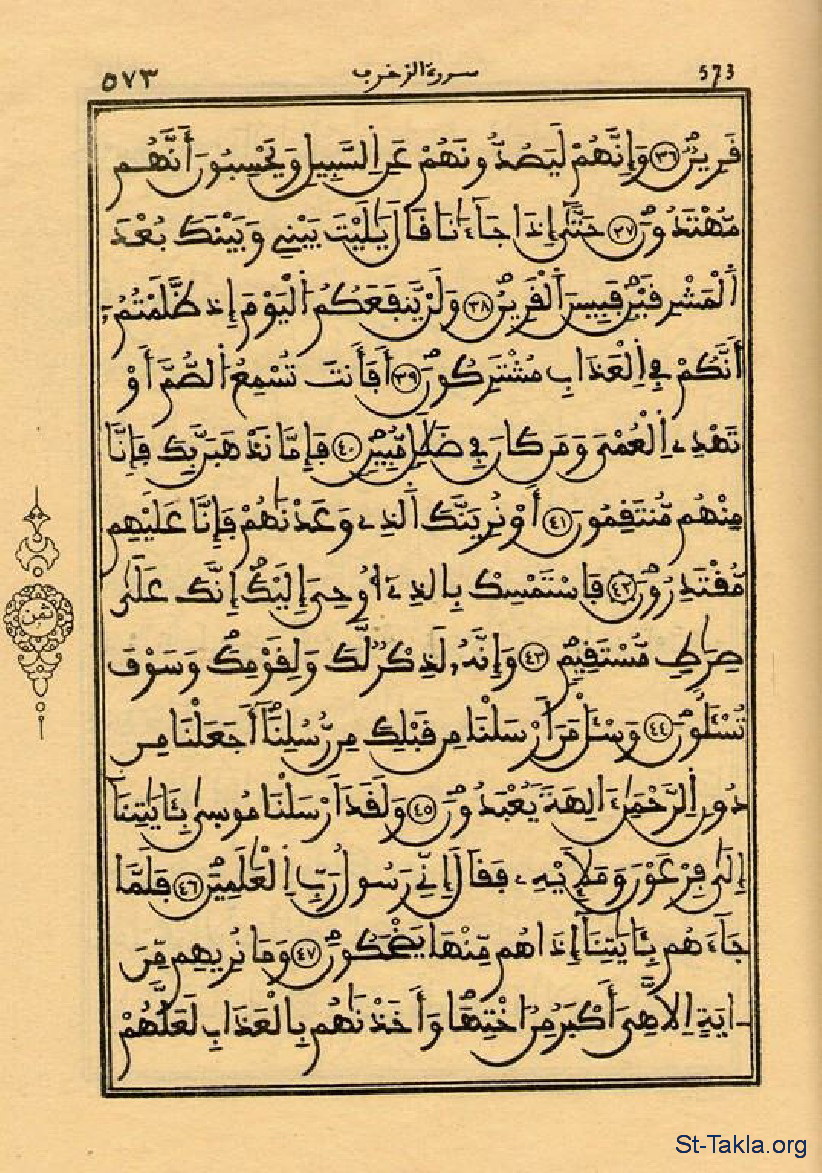 573 سورة الزخرف ٥٧٣
قَرِينٌ ٣٦ وَإِنَّهُمْ لَيَصُدُّونَهُمْ عَنِ اِلسَّبِيلِ وَيَحْسِبُونَ أَنَّهُم
مُّهْتَدُونَ ٣٧ حَتَّىٰ إِذَا جَآءَٰنَا قَالَ يَٰلَيْتَ بَيْنِي وَبَيْنَكَ بُعْدَ
اَلْمَشْرِقَيْنِ فَبِيسَ اَلْقَرِينُ ٣٨ وَلَنْ يَّنفَعَكُمُ اُلْيَوْمَ إِذ ظَّلَمْتُمُ,
أَنَّكُمْ فِي اِلْعَذَابِ مُشْتَرِكُونَ ٣٩ أَفَأَنتَ تُسْمِعُ اُلصُّمَّ أَوْ
تَهْدِے اِلْعُمْىَ وَمَن كَانَ فِي ضَلَٰلٍ مُّبِينٍ ٤٠ فَإِمَّا نَذْهَبَنَّ بِكَ فَإِنَّا
مِنْهُم مُّنتَقِمُونَ ٤١ أَوْ نُرِيَنَّكَ اَلذِے وَعَدْنَٰهُمْ فَإِنَّا عَلَيْهِم
مُّقْتَدِرُونَ ٤٢ فَاسْتَمْسِكْ بِالذِےٓ أُوحِىَ إِلَيْكَ إِنَّكَ عَلَىٰ
صِرَٰطٍ مُّسْتَقِيمٍ ٤٣ وَإِنَّهُۥ لَذِكْرٌ لَّكَ وَلِقَوْمِكَ وَسَوْفَ
تُسْـَٔلُونَ ٤٤ وَسْـَٔلْ مَنَ اَرْسَلْنَا مِن قَبْلِكَ مِن رُّسُلِنَآ أَجَعَلْنَا مِن
دُونِ اِلرَّحْمَٰنِ ءَالِهَةً يُعْبَدُونَ ٤٥ وَلَقَدَ اَرْسَلْنَا مُوسىٰ بِـَٔايَٰتِنَآ
إِلَىٰ فِرْعَوْنَ وَمَلَإِيْهِۦ فَقَالَ إِنِّي رَسُولُ رَبِّ اِلْعَٰلَمِينَ ٤٦ فَلَمَّا
جَآءَهُم بِـَٔايَٰتِنَآ إِذَا هُم مِّنْهَا يَضْحَكُونَ ٤٧ وَمَا نُرِيهِم مِّنَ
ـايَةٍ اِلَّا هِىَ أَكْبَرُ مِنُ اخْتِهَا وَأَخَذْنَٰهُم بِالْعَذَابِ لَعَلَّهُمْ
ثمن
St-Takla.org